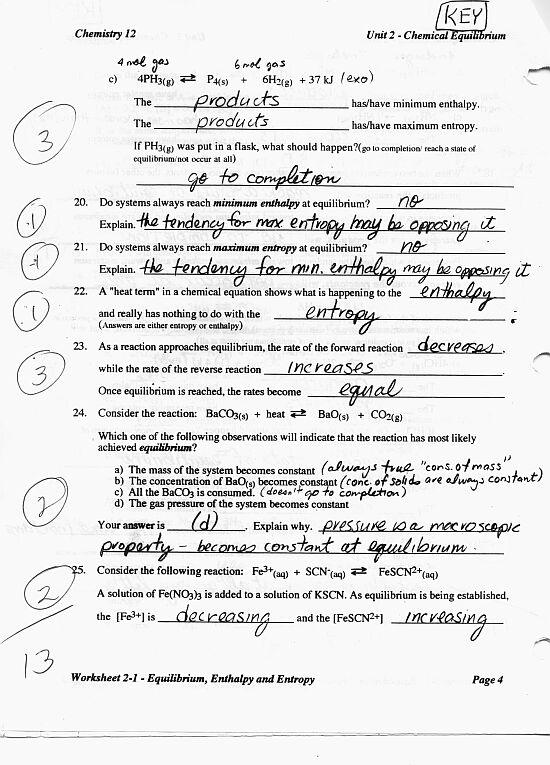 KEY
Chemistry 12 Unit 2 - Chemical Equilibrium
4 mol gas 6 mol gas
c) 4PH3(g) ⇌ P4(s) + 6H2(g) + 37 kJ (exo)
The products has/have minimum enthalpy.
The products has/have maximum entropy.
3
If PH3(g) was put in a flask, what should happen?(go to completion/ reach a state of
equilibrium/not occur at all)
go to completion
20. Do systems always reach minimum enthalpy at equilibrium? no
1
Explain. the tendency for max entropy may be opposing it
21. Do systems always reach maximum entropy at equilibrium? no
1
Explain. the tendency for min. enthalpy may be opposing it
22. A "heat term" in a chemical equation shows what is happening to the enthalpy
1
and really has nothing to do with the entropy
(Answers are either entropy or enthalpy)
23. As a reaction approaches equilibrium, the rate of the forward reaction decreases,
3
while the rate of the reverse reaction increases
Once equilibrium is reached, the rates become equal
24. Consider the reaction: BaCO3(s) + heat ⇌ BaO(s) + CO2(g)
Which one of the following observations will indicate that the reaction has most likely
achieved equilibrium?
a) The mass of the system becomes constant (always true "cons. of mass")
b) The concentration of BaO(s) becomes constant (conc. of solids are always constant)
c) All the BaCO3 is consumed. (doesn't go to completion)
d) The gas pressure of the system becomes constant
2
Your answer is (d). Explain why. pressure is a macroscopic
property - becomes constant at equilibrium.
25. Consider the following reaction: Fe3+(aq) + SCN-(aq) ⇌ FeSCN2+(aq)
2
A solution of Fe(NO3)3 is added to a solution of KSCN. As equilibrium is being established,
the [Fe3+] is decreasing and the [FeSCN2+] increasing
13
Worksheet 2-1 - Equilibrium, Enthalpy and Entropy Page 4